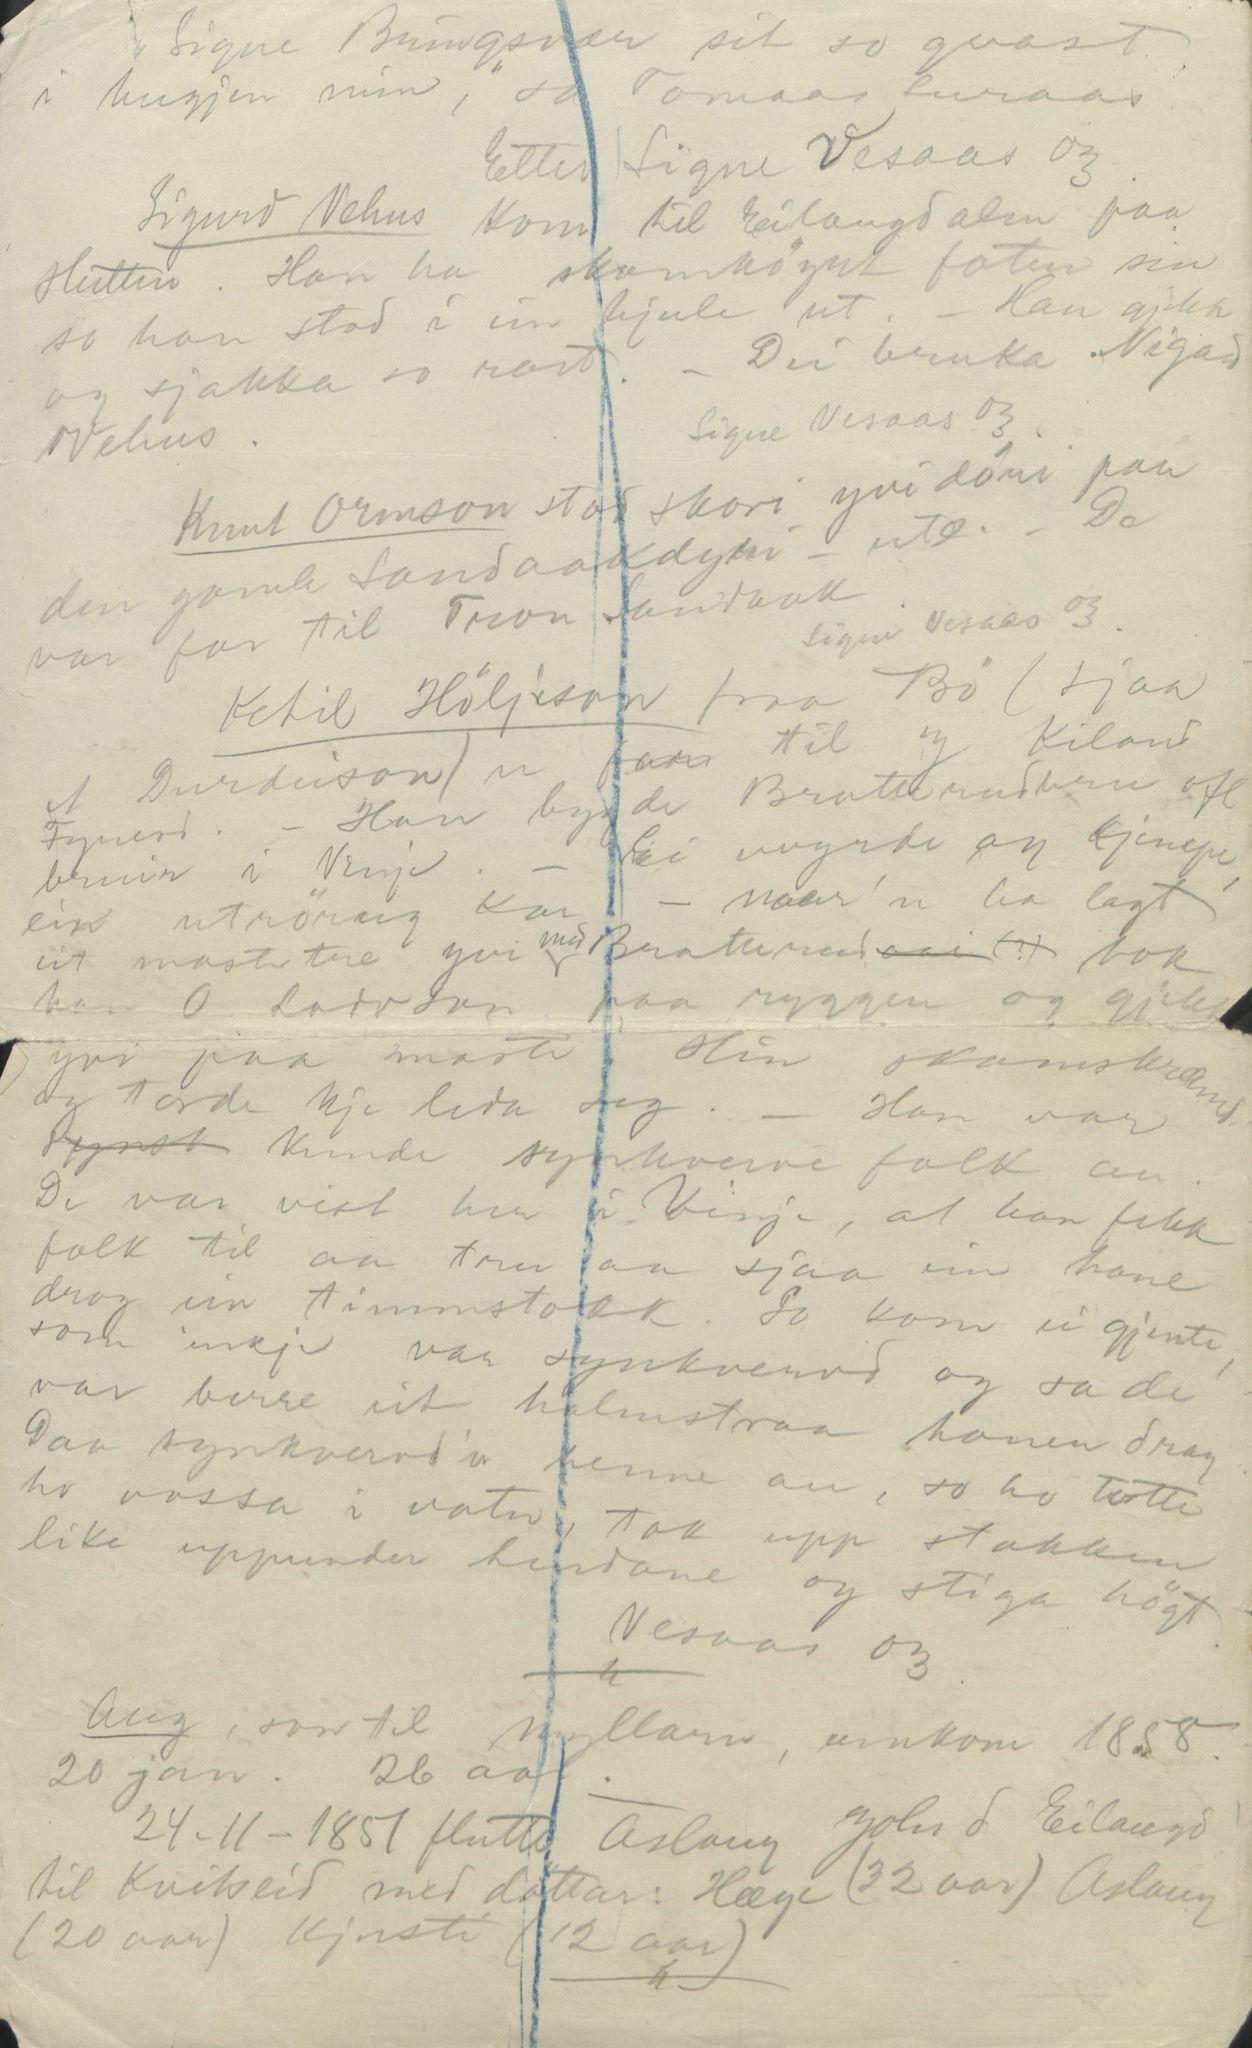 "Signe Bringsvær sit so qvast
i hugjen min," sa Tomaas Luraas.
Etter Signe Vesaas 03.
Sigurd Vehus kom til Eilaugdalen paa
slutten. Han ha skamhögge foten sin
so han stod i ein hjule ut. – Han gjekk
og sjakka so rart. – Dei bruka Nigard
Vehus.
Signe Vesaas 03.
Knut Ormson stod skori yvi döri paa
den gamle Sandaakdyri – ute. – De
var far til Tron Sandaak.
Signe Vesaas 03.
Ketil Höljeson fraa Bö (sjaa
et Durdeison) va far til og Kiland
Fyresd. – Han bygde Bratterudbrui o fl
bruir i Vinje. – Ei uvyrde og kjempe,
ein utröraig kar – naar'n ha lagt
eit mastetre yvi med Bratterud tok
han O. Lodvson paa ryggen og gjekk
yvi paa masti. Hin skamskræmd
og torde kje leda seg. – Han var
kunde synkverve folk au.
De var vist her i Vinje, at han fekk
folk til aa tru aa sjaa ein hane
drog ein timmstokk. So kom ei gjente,
som inkje var synkvervd og sa de
var berre eit halmstraa hanen drog.
Daa synkvervd'n henne au, so ho totte
ho vossa i vatn, tok upp stakken
like uppunder hendane og stiga högt.
Vesaas 03
Aug, son til Myllarn, umkom 1858.
20 jan. 26 aar.
24-11-1851 flutte Aslaug Eilaugd
til Kviteseid med döttar: Hæge (22 aar) Aslaug
(20 aar) Kjersti (12 aar)